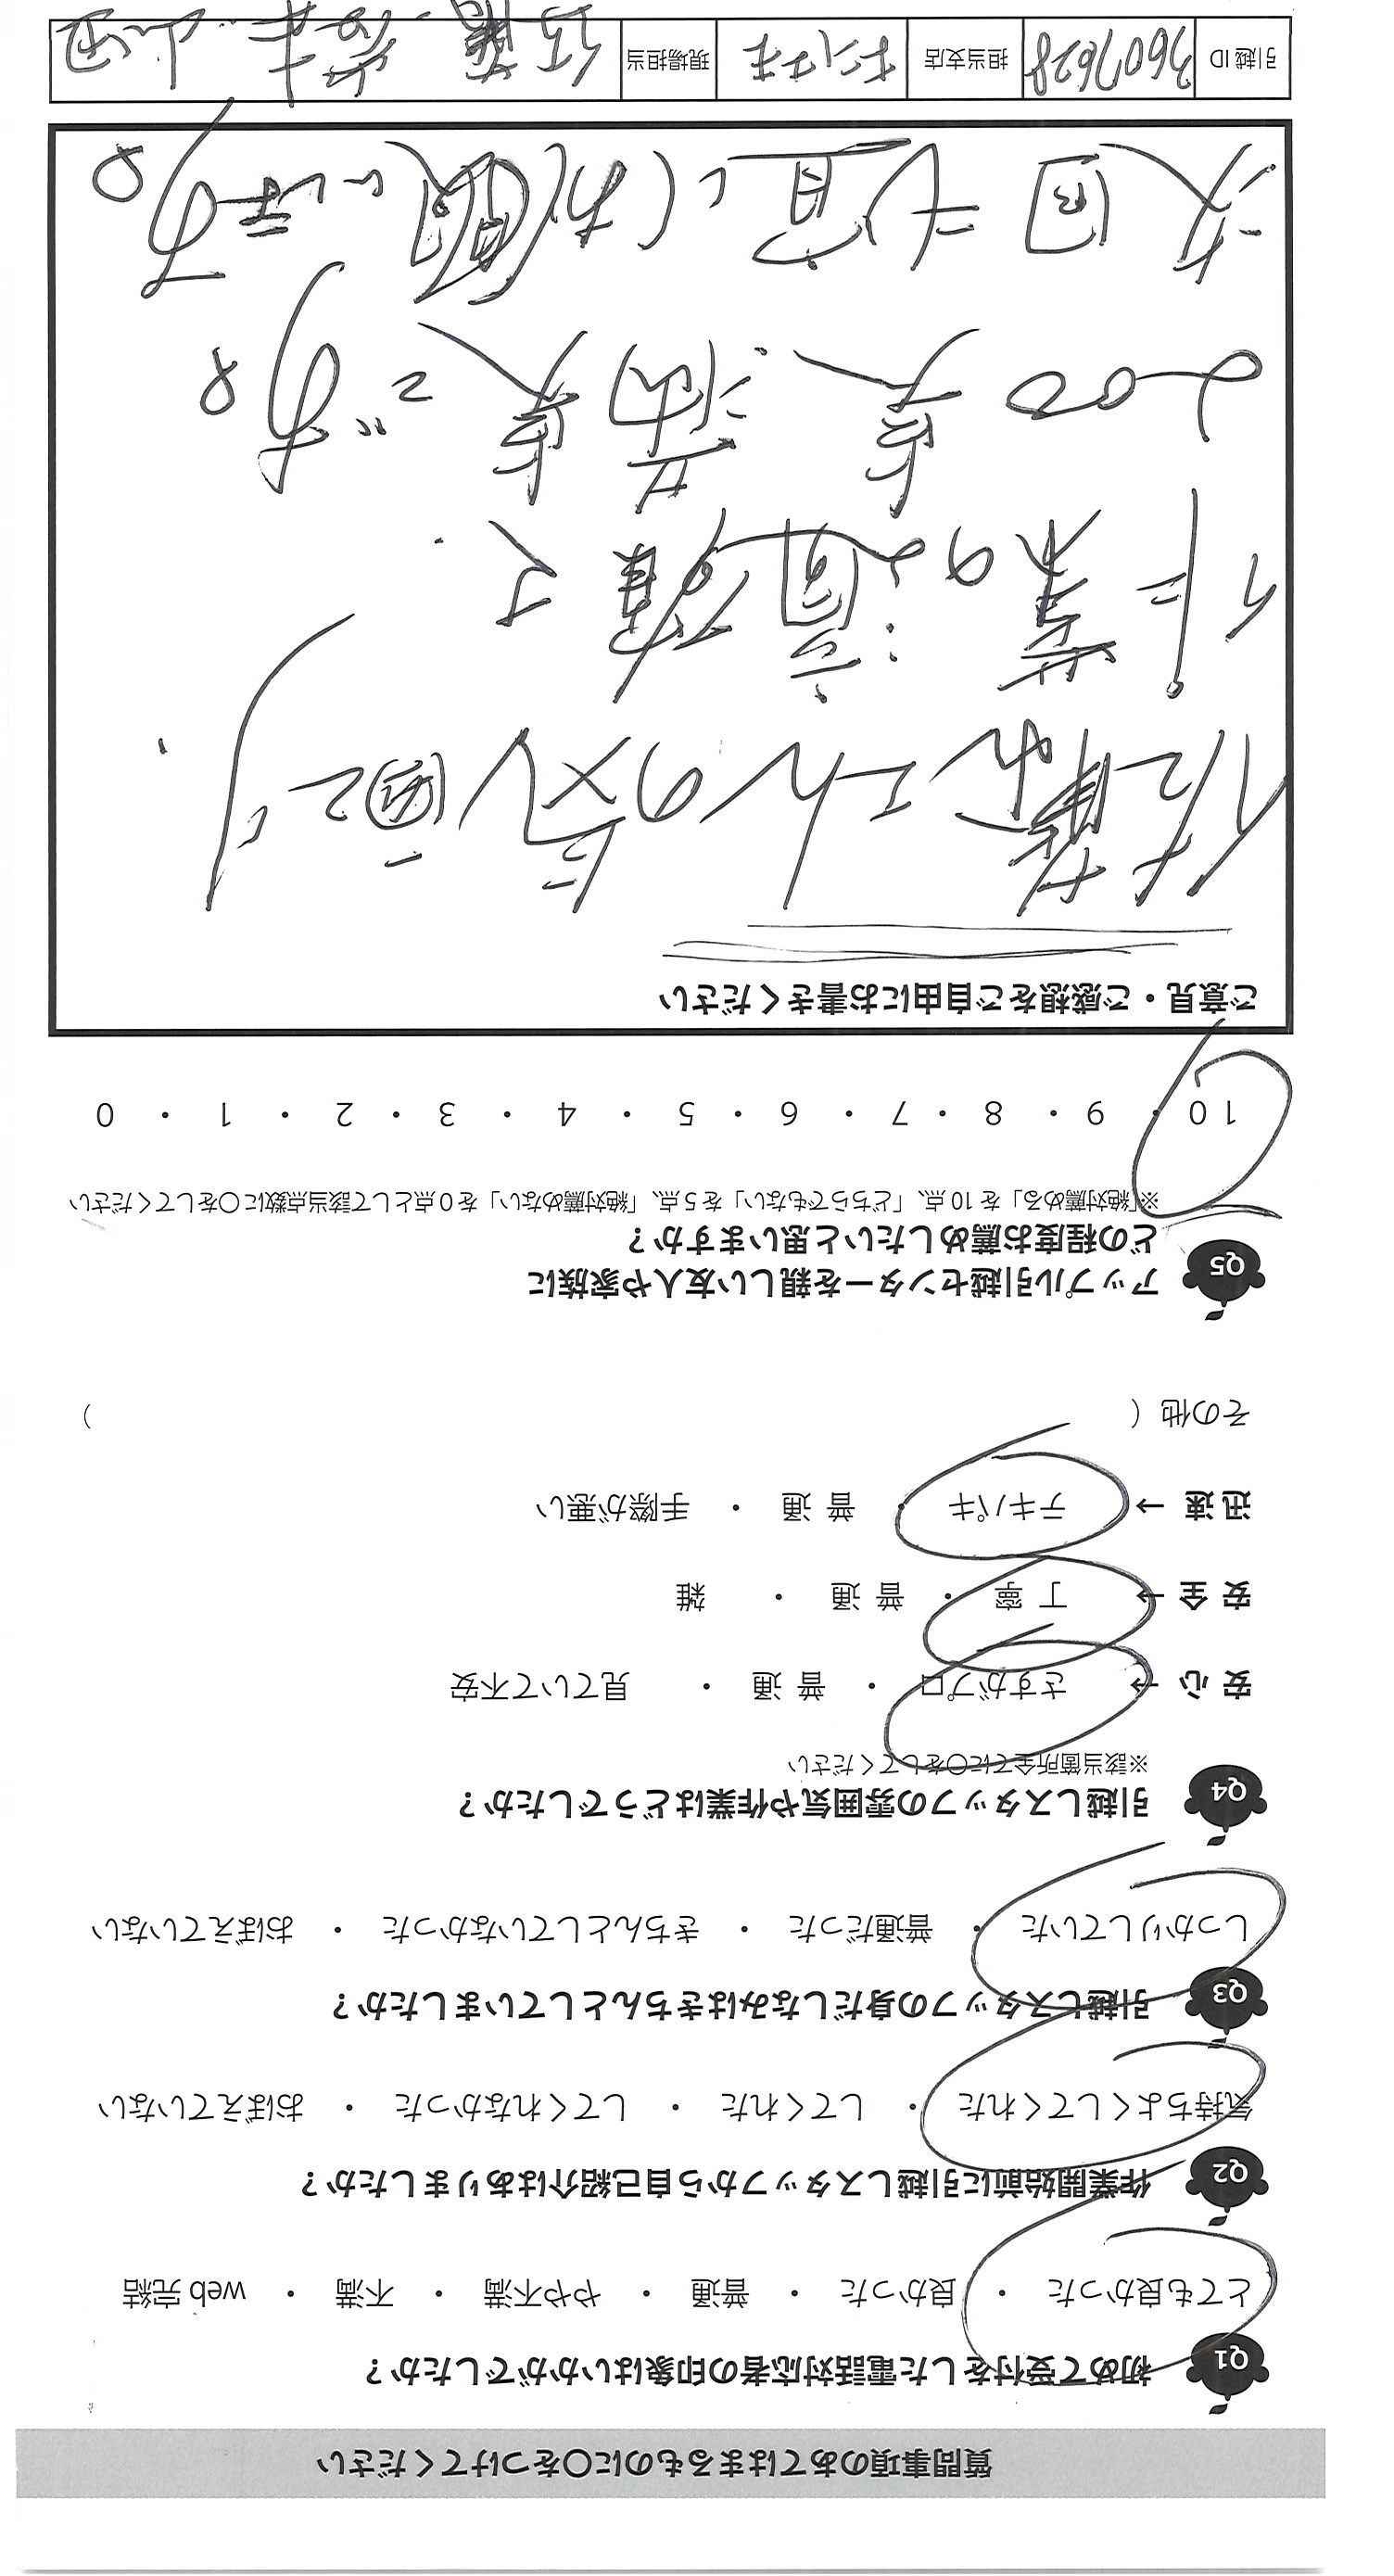 質問事項のあてはまるものに〇をつけてください
Q1 初めて受付をした電話対応者の印象はいかがでしたか？
とても良かった ・ 良かった ・ 普通 ・ やや不満 ・ 不満 ・ web 完結
Q2 作業開始前に引越しスタッフから自己紹介はありましたか？
気持ちよくしてくれた ・ してくれた ・ してくれなかった ・ おぼえていない
Q3 引越しスタッフの身だしなみはきちんとしていましたか？
しっかりしていた ・ 普通だった ・ きちんとしていなかった ・ おぼえていない
Q4 引越しスタッフの雰囲気や作業はどうでしたか？
※該当箇所全てに〇をしてください
安 心 → さすがプロ ・ 普 通 ・ 見ていて不安
安 全 → 丁 寧 ・ 普 通 ・ 雑
迅 速 → テキパキ ・ 普 通 ・ 手際が悪い
その他（ ）
Q5 アップル引越センターを親しい友人や家族に
どの程度お薦めしたいと思いますか？
※「絶対薦める」を 10 点、「どちらでもない」を 5 点、「絶対薦めない」を 0 点として該当点数に〇をしてください
10 ・ 9 ・ 8 ・ 7 ・ 6 ・ 5 ・ 4 ・ 3 ・ 2 ・ 1 ・ 0
ご意見・ご感想をご自由にお書きください
依頼
作業の
200 満 です。
次回も宜しくお願いします。
引越 ID 3607628 担当支店 現場担当 佐藤